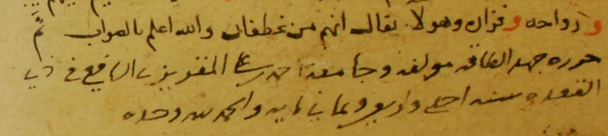 وزواحه وفزان وهولا يقال انهم من غطفان والله اعلم بالصواب تم
حرره جهد الطاقه مولفه وجامعه احمد بن على المقريزى الشافعى فى ذى
القعده سنه احدى واربعين وثمان مايه والحمد لله وحده